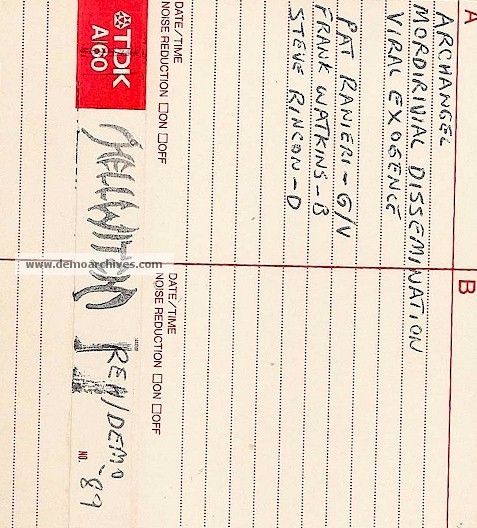 A
B
ARCHANGEL
MORDIRIVIAL DISSEMINATION
VIRAL EXOGENCE
PAT RANERI - G/V
FRANK WATKINS - B
STEVE RINCON - D
DATE/TIME
NOISE REDUCTION ☐ON ☐OFF
DATE/TIME
NOISE REDUCTION ☐ON ☐OFF
TDK
A60
HELLWITCH
REH/DEMO -89
NO.
www.demoarchives.com